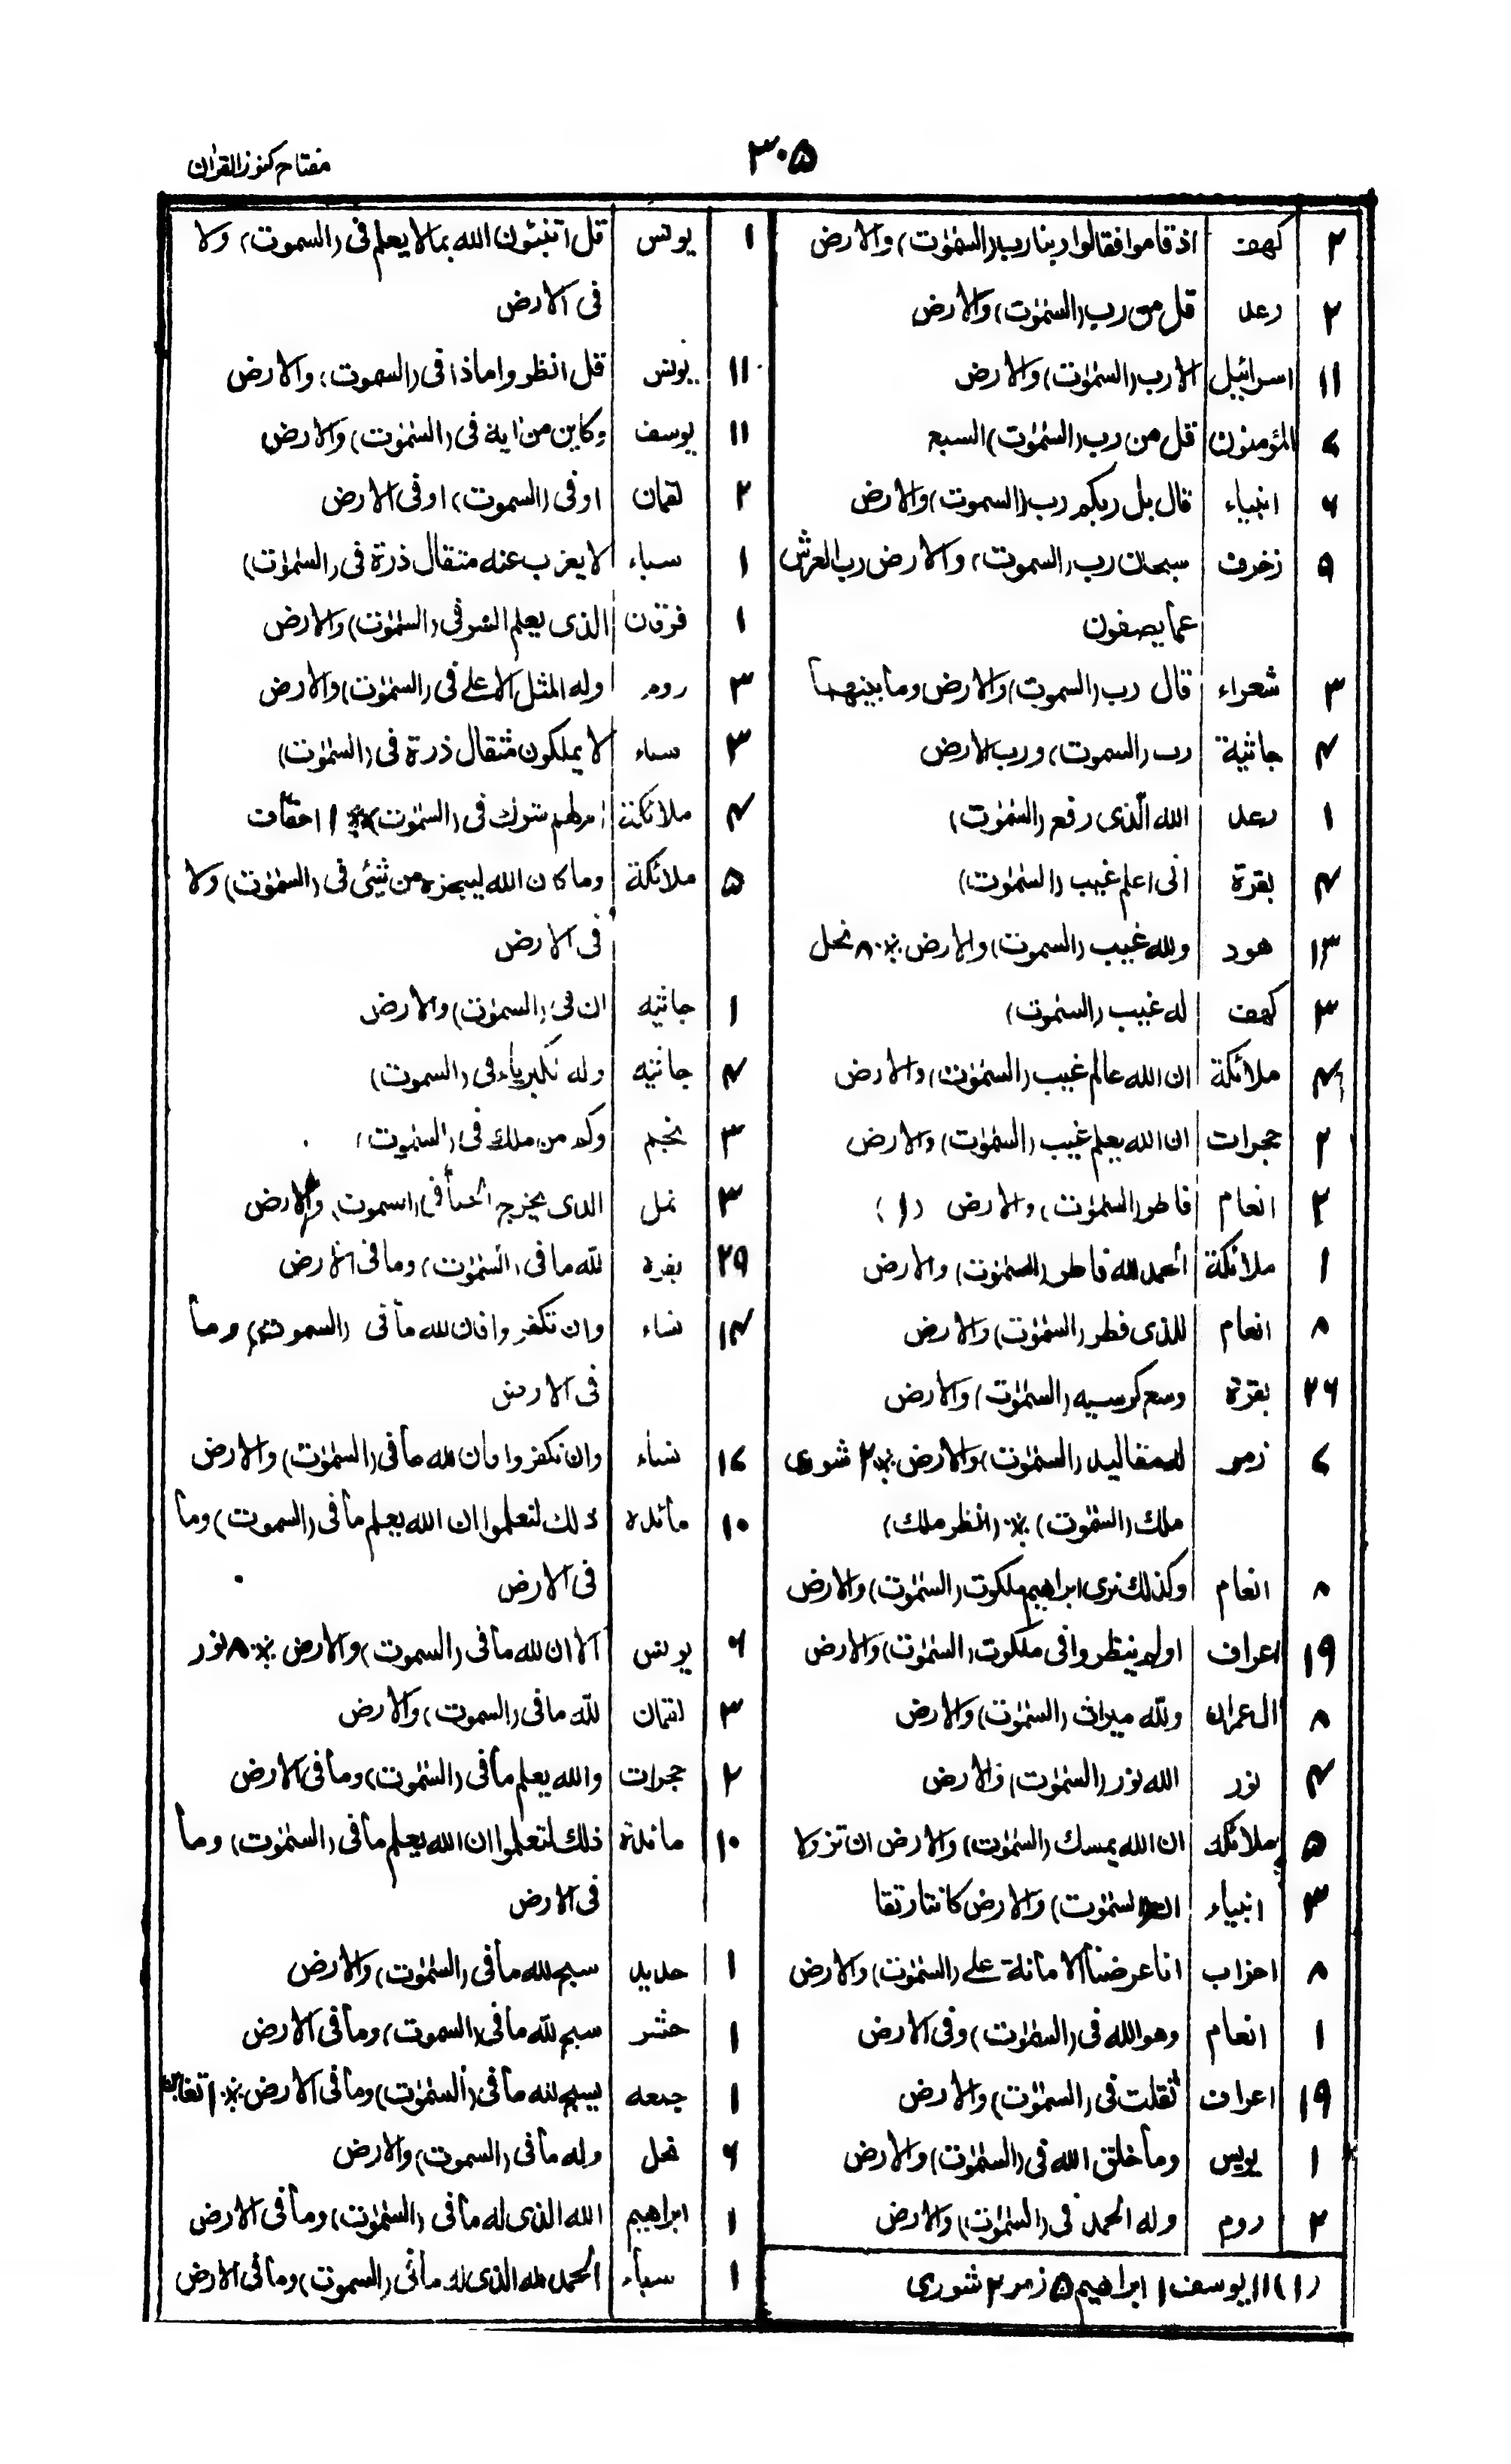 ۳۰۵
مفتاح کنوز القرآن
۲ کهف اذ قاموا فقالوا ربنا رب (السمٰوٰت) والارض
۲ رعد قل من رب (السمٰوٰت) والارض
۱۱ اسرائیل الا رب (السمٰوٰت) والارض
۶ المؤمنون قل من رب (السمٰوٰت) السبع
۶ انبیاء قال بل ربکم رب (السموت) والارض
۵ زخرف سبحان رب (السموت) والارض رب العرش
عما یصفون
۳ شعراء قال رب (السموت) والارض وما بینهما
۴ جاثیة رب (السموت) ورب الارض
۱ رعد الله الّذی رفع (السمٰوٰت)
۴ بقرة انی اعلم غیب (السمٰوٰت)
۱۳ هود ولله غیب (السموت) والارض ※ ۸ نحل
۳ کهف له غیب (السمٰوت)
۴ ملائکة ان الله عالم غیب (السمٰوٰت) والارض
۲ حجرات ان الله یعلم غیب (السمٰوٰت) والارض
۲ انعام فاطر (السمٰوٰت) والارض (۱)
۱ ملائکة الحمد لله فاطر (السمٰوٰت) والارض
۸ انعام للذی فطر (السمٰوٰت) والارض
۲۶ بقرة وسع کرسیه (السمٰوٰت) والارض
۶ زمر له مقالید (السمٰوٰت) والارض ※ ۲ شوری
ملك (السمٰوٰت) ※ (انظر ملك)
۸ انعام وکذلك نری ابراهیم ملکوت (السمٰوٰت) والارض
۱۹ اعراف اولم ینظروا فی ملکوت (السمٰوٰت) والارض
۸ ال عمران ولله میراث (السمٰوٰت) والارض
۴ نور الله نور (السمٰوٰت) والارض
۵ ملائکة ان الله یمسك (السمٰوٰت) والارض ان تزولا
۳ انبیاء (السمٰوٰت) والارض کانتا رتقا
۸ احزاب انا عرضنا الامانة علے (السمٰوٰت) والارض
۱ انعام وهو الله فی (السمٰوٰت) وفی الارض
۱۹ اعراف ثقلت فی (السمٰوٰت) والارض
۱ یونس وما خلق الله فی (السمٰوٰت) والارض
۲ روم وله الحمد فی (السمٰوٰت) والارض
(۱) ۱۱ یوسف ۱ ابراهیم ۵ زمر ۲ شوری
۱ یونس قل اتنبئون الله بما لا یعلم فی (السموت) ولا
فی الارض
۱۱ یونس قل انظروا ماذا فی (السموت) والارض
۱۱ یوسف وکاین من اٰیة فی (السمٰوٰت) والارض
۲ لقمان او فی (السموت) او فی الارض
۱ سباء لا یعزب عنه مثقال ذرة فی (السمٰوٰت)
۱ فرقان الذی یعلم السر فی (السمٰوٰت) والارض
۳ روم وله المثل الاعلے فی (السمٰوٰت) والارض
۳ سباء لا یملکون مثقال ذرة فی (السمٰوٰت)
۴ ملائکة ام لهم شرك فی (السمٰوٰت) ※ ۱ احقاف
۵ ملائکة وما کان الله لیعجزه من شیٔ فی (السمٰوٰت) ولا
فی الارض
۱ جاثیه ان فی (السمٰوٰت) والارض
۴ جاثیه وله الکبریاء فی (السموت)
۳ نجم وکم من ملك فی (السمٰوت)
۳ نمل الذی یخرج الخبأ فی (السموت) والارض
۲۹ بقره لله ما فی (السمٰوٰت) وما فی الارض
۱۴ نساء وان تکفروا فان لله ما فی (السموت) وما
فی الارض
۱۶ نساء وان تکفروا فان لله ما فی (السمٰوٰت) والارض
۱۰ مائده ذلك لتعلموا ان الله یعلم ما فی (السموت) وما
فی الارض
۶ یونس الا ان لله ما فی (السموت) والارض ※ ۸ نور
۳ لقمان لله ما فی (السموت) والارض
۲ حجرات والله یعلم ما فی (السمٰوٰت) وما فی الارض
۱۰ مائدة ذلك لتعلموا ان الله یعلم ما فی (السمٰوٰت) وما
فی الارض
۱ حدید سبح لله ما فی (السمٰوٰت) والارض
۱ حشر سبح لله ما فی (السموت) وما فی الارض
۱ جمعه یسبح لله ما فی (السمٰوٰت) وما فی الارض ※ ۱ تغابن
۶ نحل وله ما فی (السموت) والارض
۱ ابراهیم الله الذی له ما فی (السمٰوٰت) وما فی الارض
۱ سباء الحمد لله الذی له ما فی (السموت) وما فی الارض